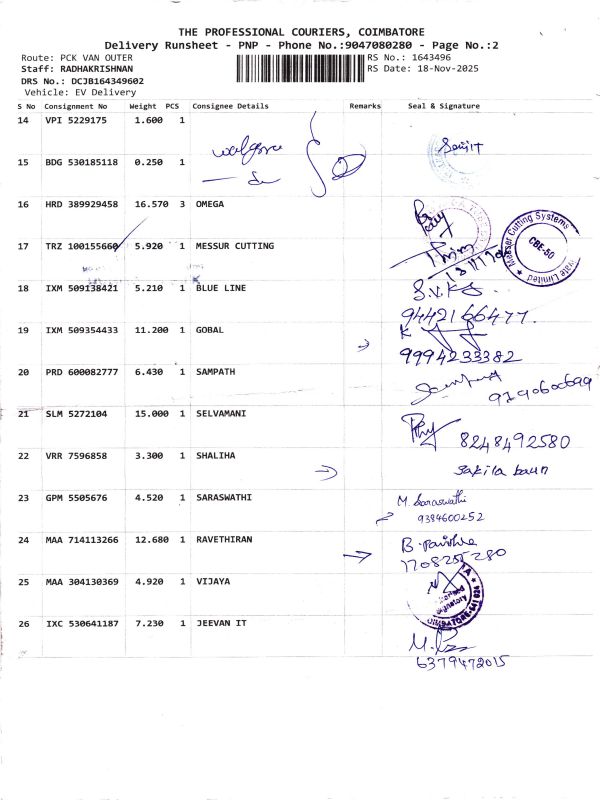 THE PROFESSIONAL COURIERS, COIMBATORE
Delivery Runsheet - PNP - Phone No.:9047080280 - Page No.:2
Route: PCK VAN OUTER
RS No.: 1643496
Staff: RADHAKRISHNAN
RS Date: 18-Nov-2025
DRS No.: DCJB164349602
Vehicle: EV Delivery
S No Consignment No Weight PCS Consignee Details Remarks Seal & Signature
14 VPI 5229175 1.600 1
15 BDG 530185118 0.250 1
16 HRD 389929458 16.570 3 OMEGA
17 TRZ 100155660 5.920 1 MESSUR CUTTING
Messer Cutting Systems
CBE-50
18 IXM 509138421 5.210 1 BLUE LINE
S.V.K.S
9442166477.
19 IXM 509354433 11.200 1 GOBAL
9994233382
20 PRD 600082777 6.430 1 SAMPATH
21 SLM 5272104 15.000 1 SELVAMANI
8248492580
22 VRR 7596858 3.300 1 SHALIHA
Sakila banu
23 GPM 5505676 4.520 1 SARASWATHI
M. Saraswathi
9384600252
24 MAA 714113266 12.680 1 RAVETHIRAN
25 MAA 304130369 4.920 1 VIJAYA
26 IXC 530641187 7.230 1 JEEVAN IT
6379472015